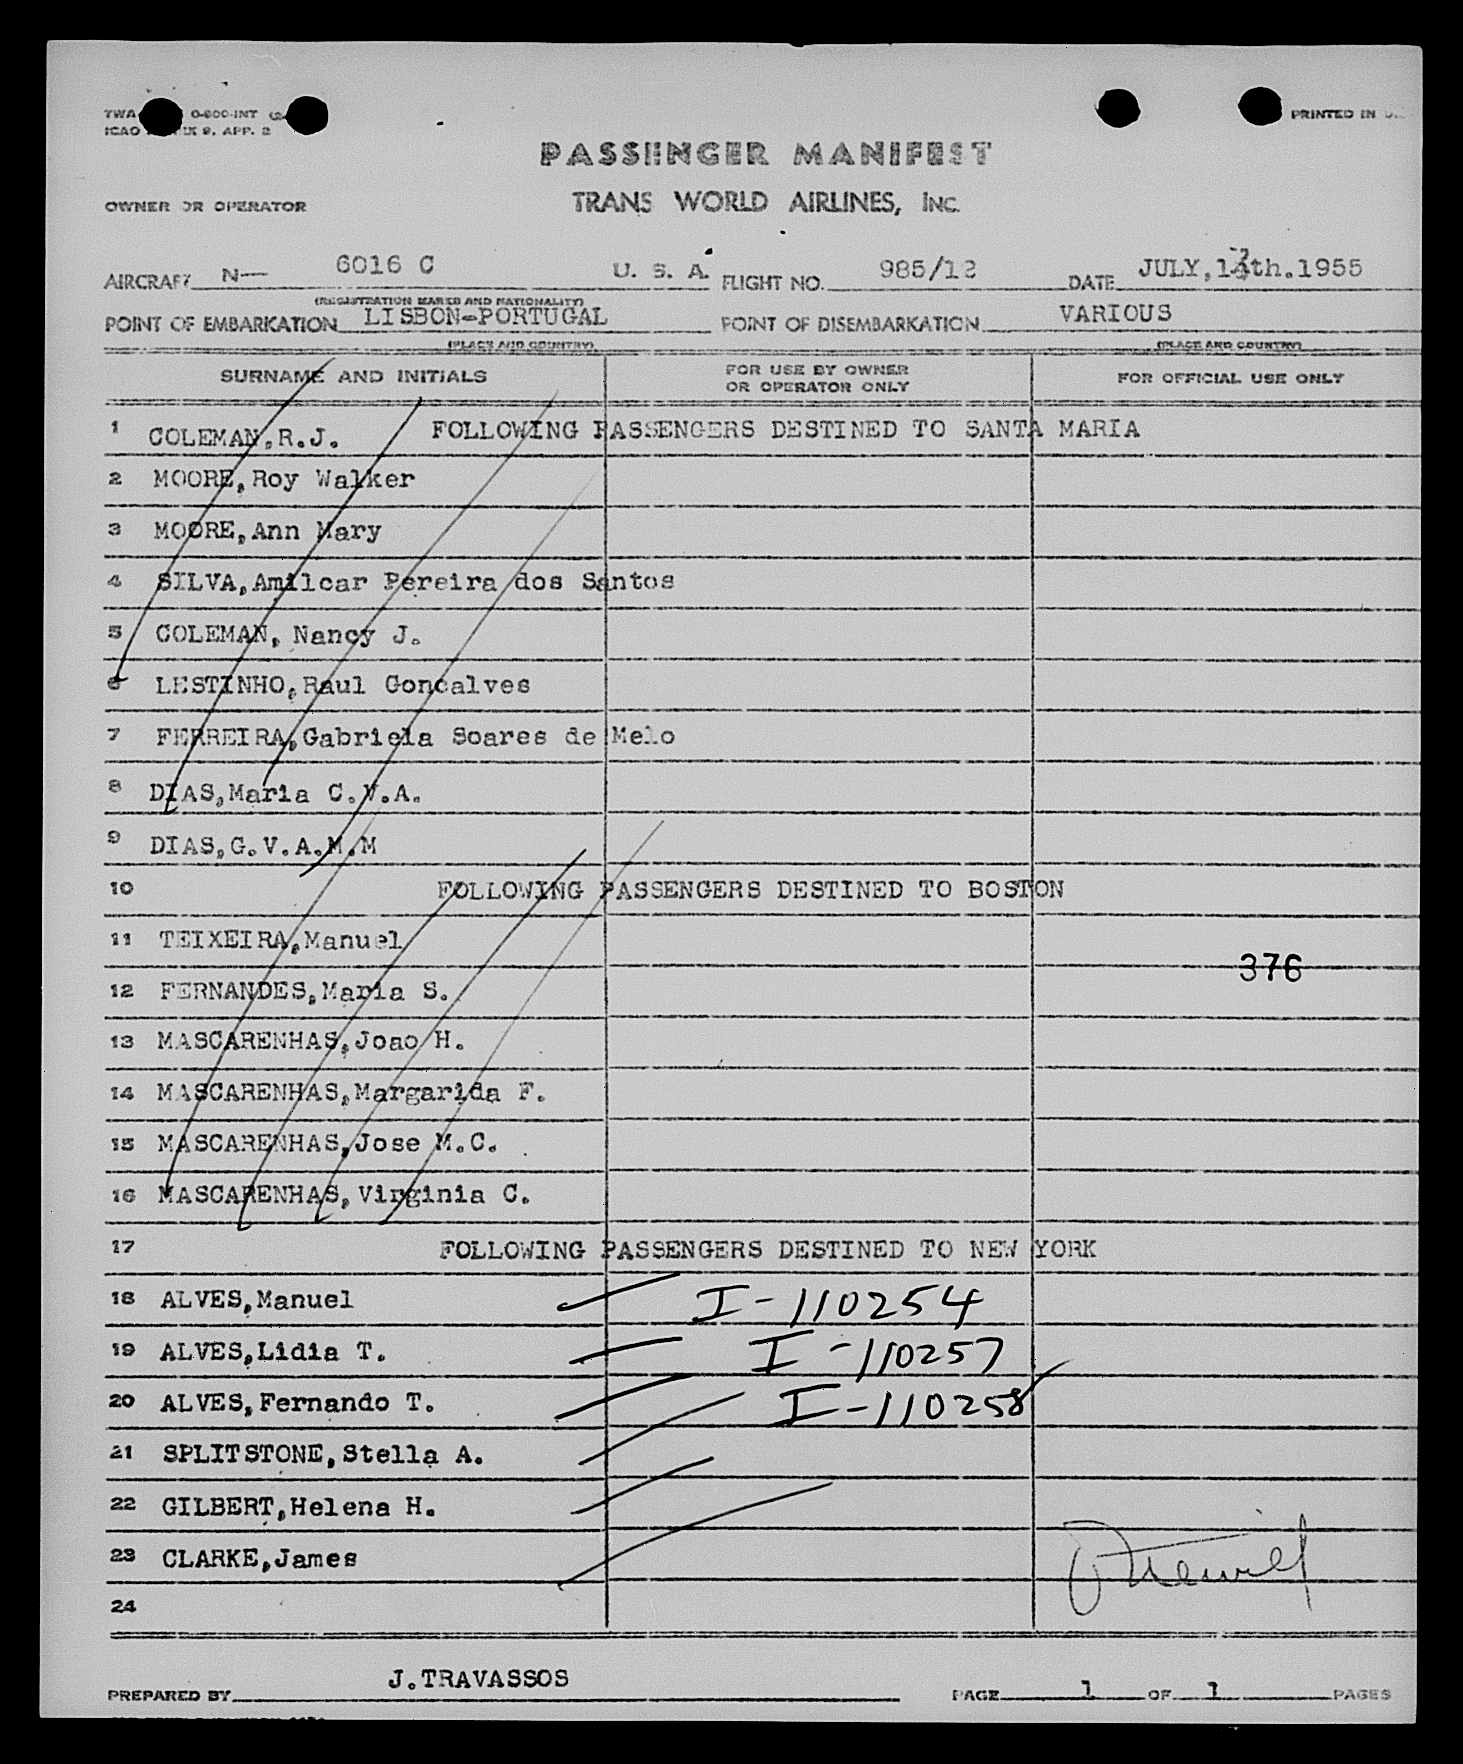 TWA 0-600-INT
ICAO 9, APP. 2
PRINTED IN U.
PASSENGER MANIFEST
OWNER OR OPERATOR TRANS WORLD AIRLINES, INC.
AIRCRAFT N— 6016 C U. S. A. FLIGHT NO. 985/12 DATE JULY, 13th. 1955
(REGISTRATION MARKS AND NATIONALITY)
POINT OF EMBARKATION LISBON-PORTUGAL POINT OF DISEMBARKATION VARIOUS
(PLACE AND COUNTRY) (PLACE AND COUNTRY)
SURNAME AND INITIALS FOR USE BY OWNER OR OPERATOR ONLY FOR OFFICIAL USE ONLY
1 COLEMAN, R.J. FOLLOWING PASSENGERS DESTINED TO SANTA MARIA
2 MOORE, Roy Walker
3 MOORE, Ann Mary
4 SILVA, Amilcar Pereira dos Santos
5 COLEMAN, Nancy J.
6 LESTINHO, Raul Goncalves
7 FERREIRA, Gabriela Soares de Melo
8 DIAS, Maria C.V.A.
9 DIAS, G.V.A.M.M
10 FOLLOWING PASSENGERS DESTINED TO BOSTON
11 TEIXEIRA, Manuel
376
12 FERNANDES, Maria S.
13 MASCARENHAS, Joao H.
14 MASCARENHAS, Margarida F.
15 MASCARENHAS, Jose M.C.
16 MASCARENHAS, Virginia C.
17 FOLLOWING PASSENGERS DESTINED TO NEW YORK
18 ALVES, Manuel I-110254
19 ALVES, Lidia T. I-110257
20 ALVES, Fernando T. I-110258
21 SPLITSTONE, Stella A.
22 GILBERT, Helena H.
23 CLARKE, James
24
PREPARED BY J. TRAVASSOS PAGE 1 OF 1 PAGES